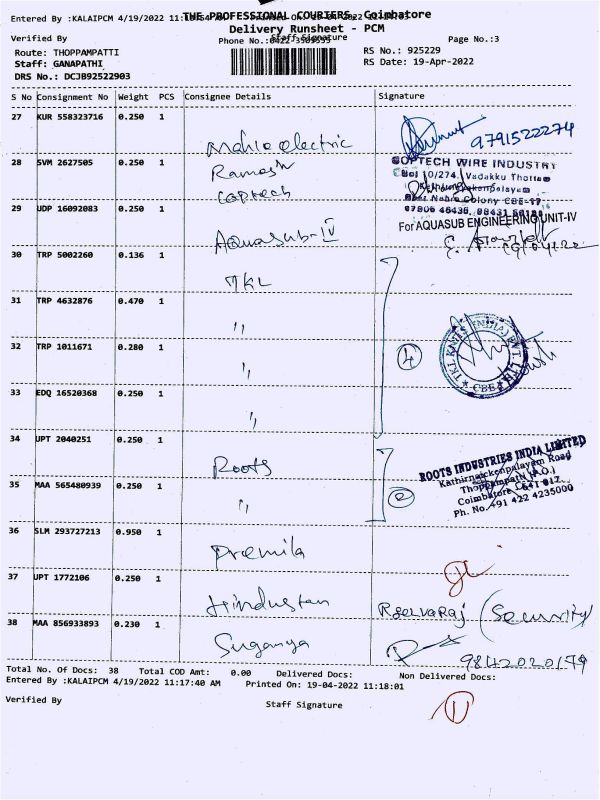 Entered By :KALAIPCM 4/19/2022
THE PROFESSIONAL COURIERS- Coimbatore
Delivery Runsheet - PCM
Verified By
Staff Signature
Page No.:3
Route: THOPPAMPATTI
Staff: GANAPATHI
DRS No.: DCJB92522903
RS No.: 925229
RS Date: 19-Apr-2022
S No Consignment No Weight PCS Consignee Details Signature
27 KUR 558323716 0.250 1
Mahle electric 9791522274
28 SVM 2627505 0.250 1
Ramesh
Coptech
COPTECH WIRE INDUSTRY
10/274, Vadakku Thottam
Near Nehru Colony CBE-17
29 UDP 16092083 0.250 1
Aquasub-IV
For AQUASUB ENGINEERING UNIT-IV
30 TRP 5002260 0.136 1
TKL
31 TRP 4632876 0.470 1
"
32 TRP 1011671 0.280 1
"
4
TKT KNITS (INDIA) PVT. LTD
* CBE *
33 EDQ 16520368 0.250 1
"
34 UPT 2040251 0.250 1
Roots
35 MAA 565480939 0.250 1
"
2
ROOTS INDUSTRIES INDIA LIMITED
Kathirnaickenpalayam Road
Thoppampatti (P.O.)
Coimbatore - 641 017.
Ph. No. +91 422 4235000
36 SLM 293727213 0.950 1
Premila
37 UPT 1772106 0.250 1
Hindustan
R Selvaraj (Security)
38 MAA 856933893 0.230 1
Suganya
9842020179
Total No. Of Docs: 38 Total COD Amt: 0.00 Delivered Docs: Non Delivered Docs:
Entered By :KALAIPCM 4/19/2022 11:17:40 AM Printed On: 19-04-2022 11:18:01
Verified By
Staff Signature